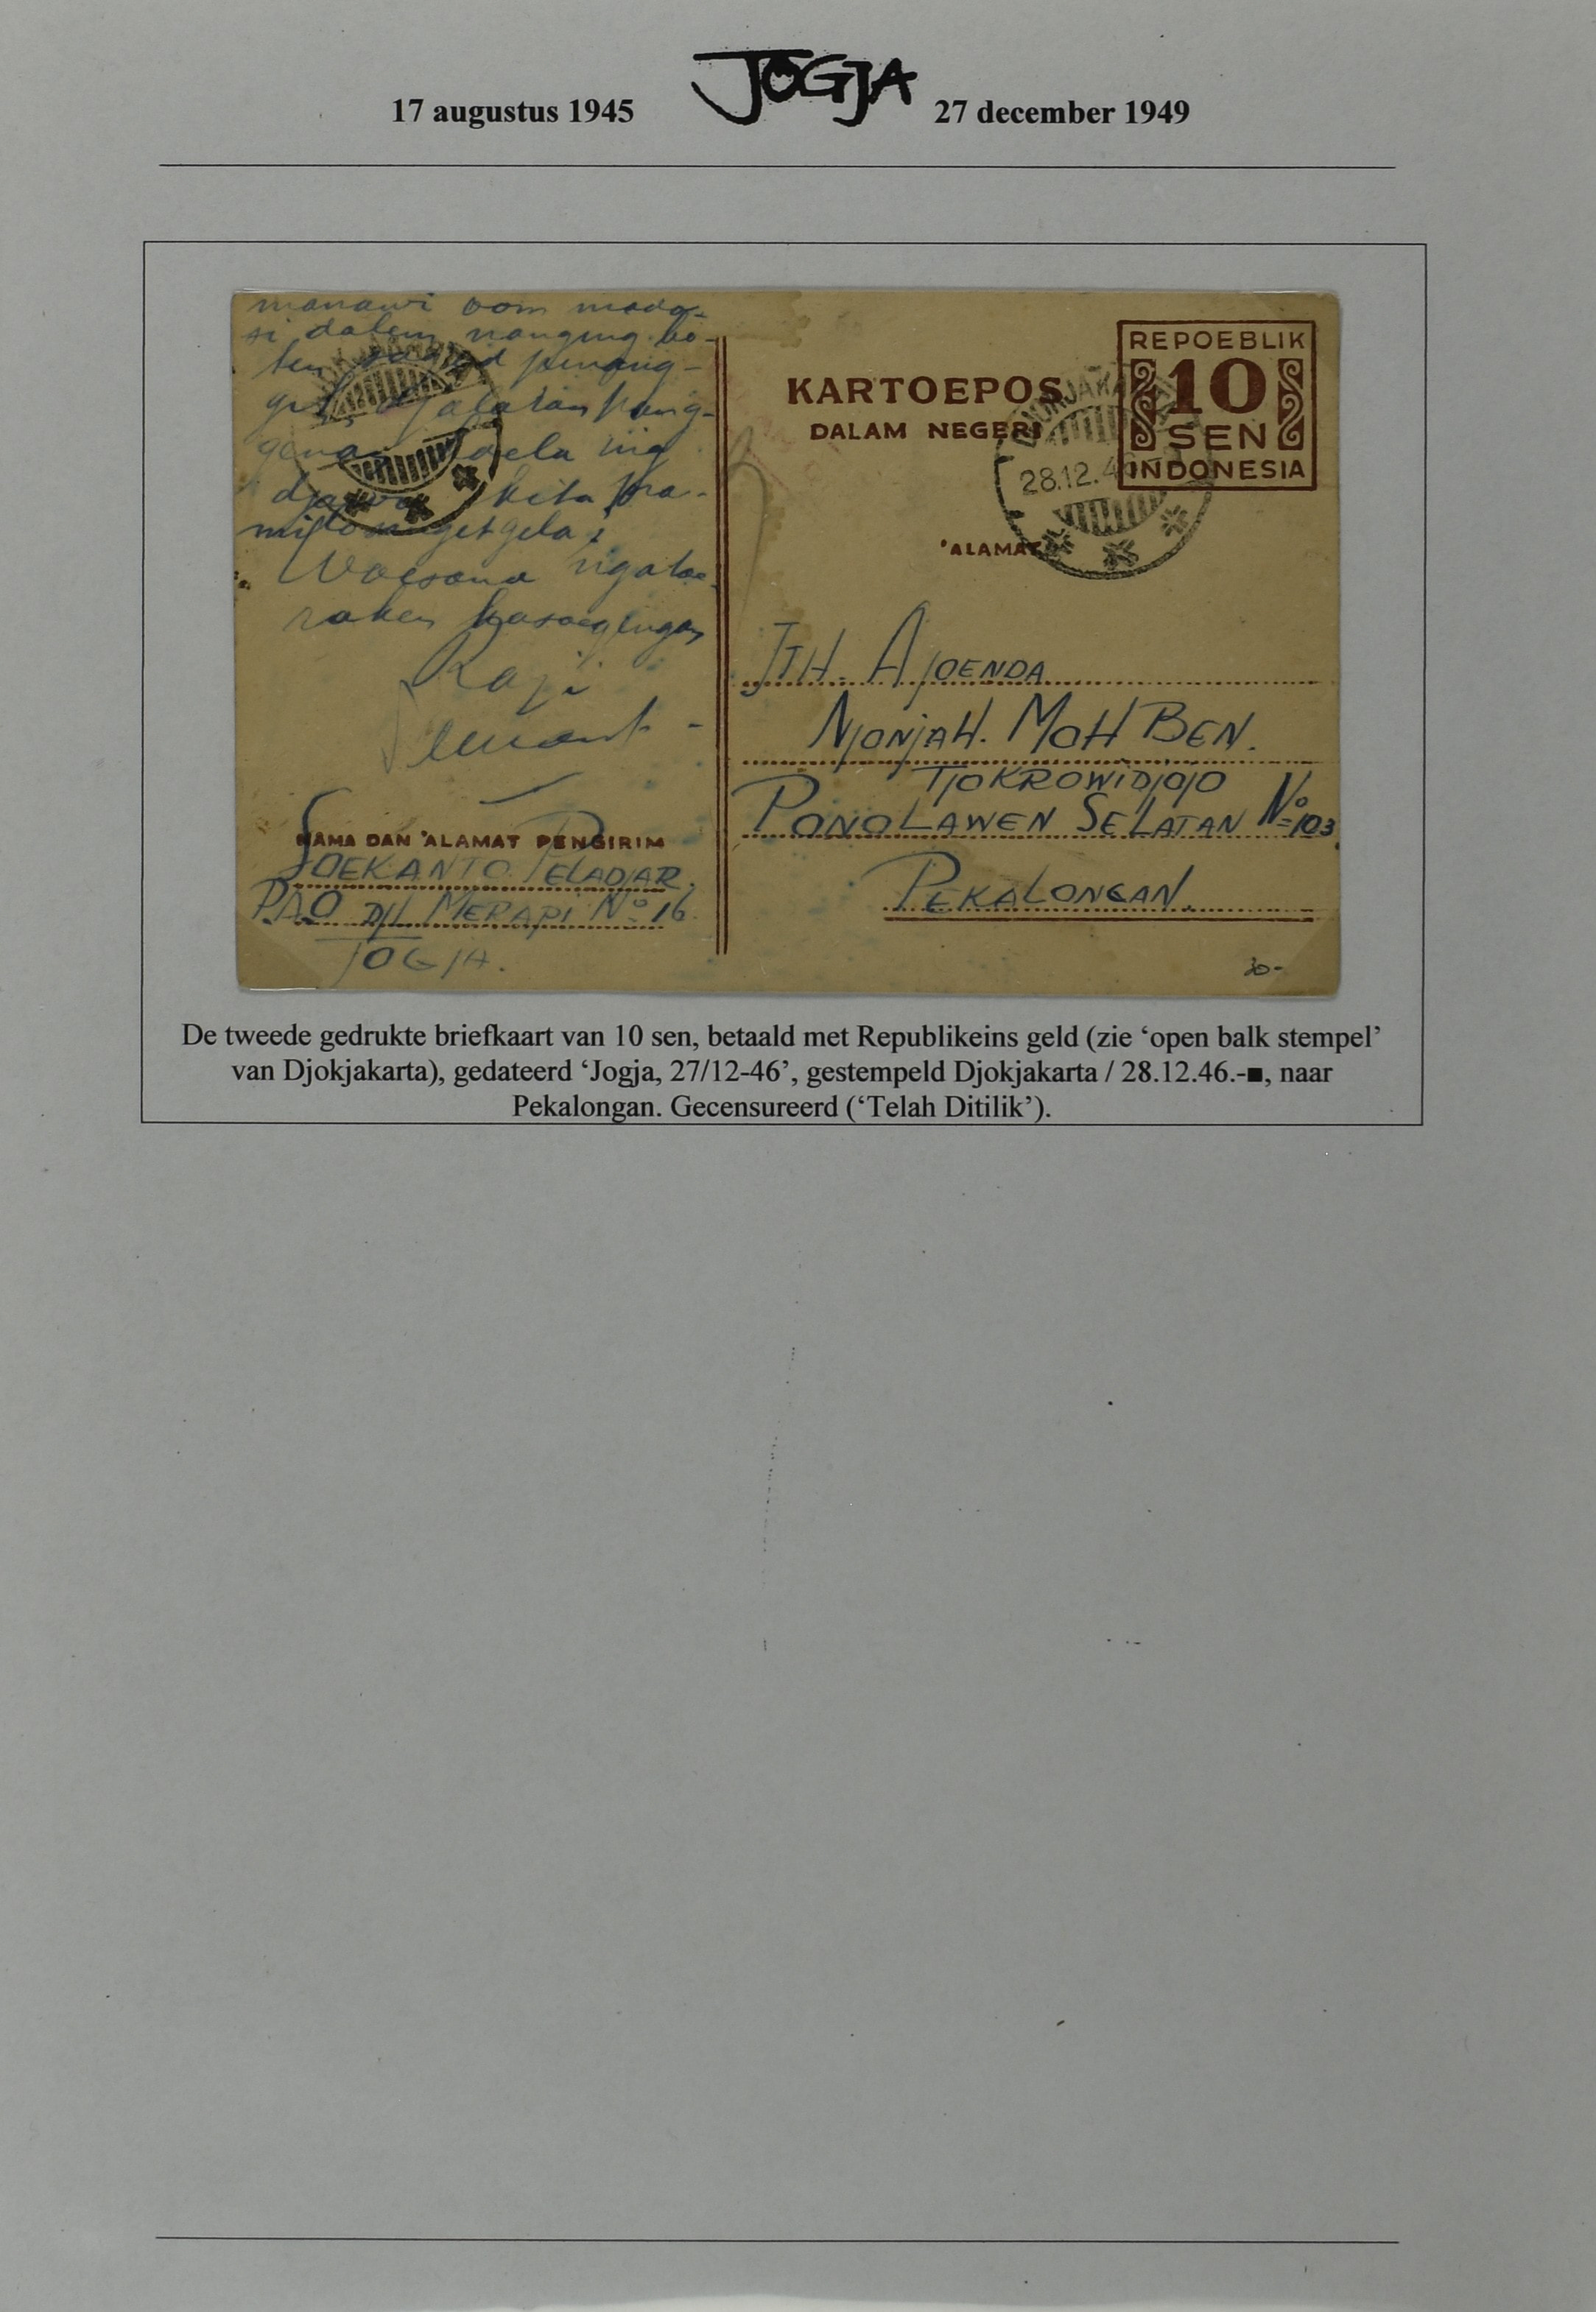 17 augustus 1945
JOGJA
27 december 1949
manawi oom mada-
si dalem nanging bo-
ten
djawa kita pra-
milo
Waesana ngatoe-
raken kasoegengan
NAMA DAN 'ALAMAT PENGIRIM
SOEKANTO PELADJAR.
PAO DJL MERAPI No 16
JOGJA.
REPOEBLIK
10
SEN
INDONESIA
KARTOEPOS
DALAM NEGERI
28.12.4
'ALAMAT
JTH. AJOENDA
NJONJAH. MOH BEN.
TJOKROWIDJOJO
PONOLAWEN SELATAN No 103
PEKALONGAN.
De tweede gedrukte briefkaart van 10 sen, betaald met Republikeins geld (zie ‘open balk stempel’
van Djokjakarta), gedateerd ‘Jogja, 27/12-46’, gestempeld Djokjakarta / 28.12.46.-■, naar
Pekalongan. Gecensureerd (‘Telah Ditilik’).